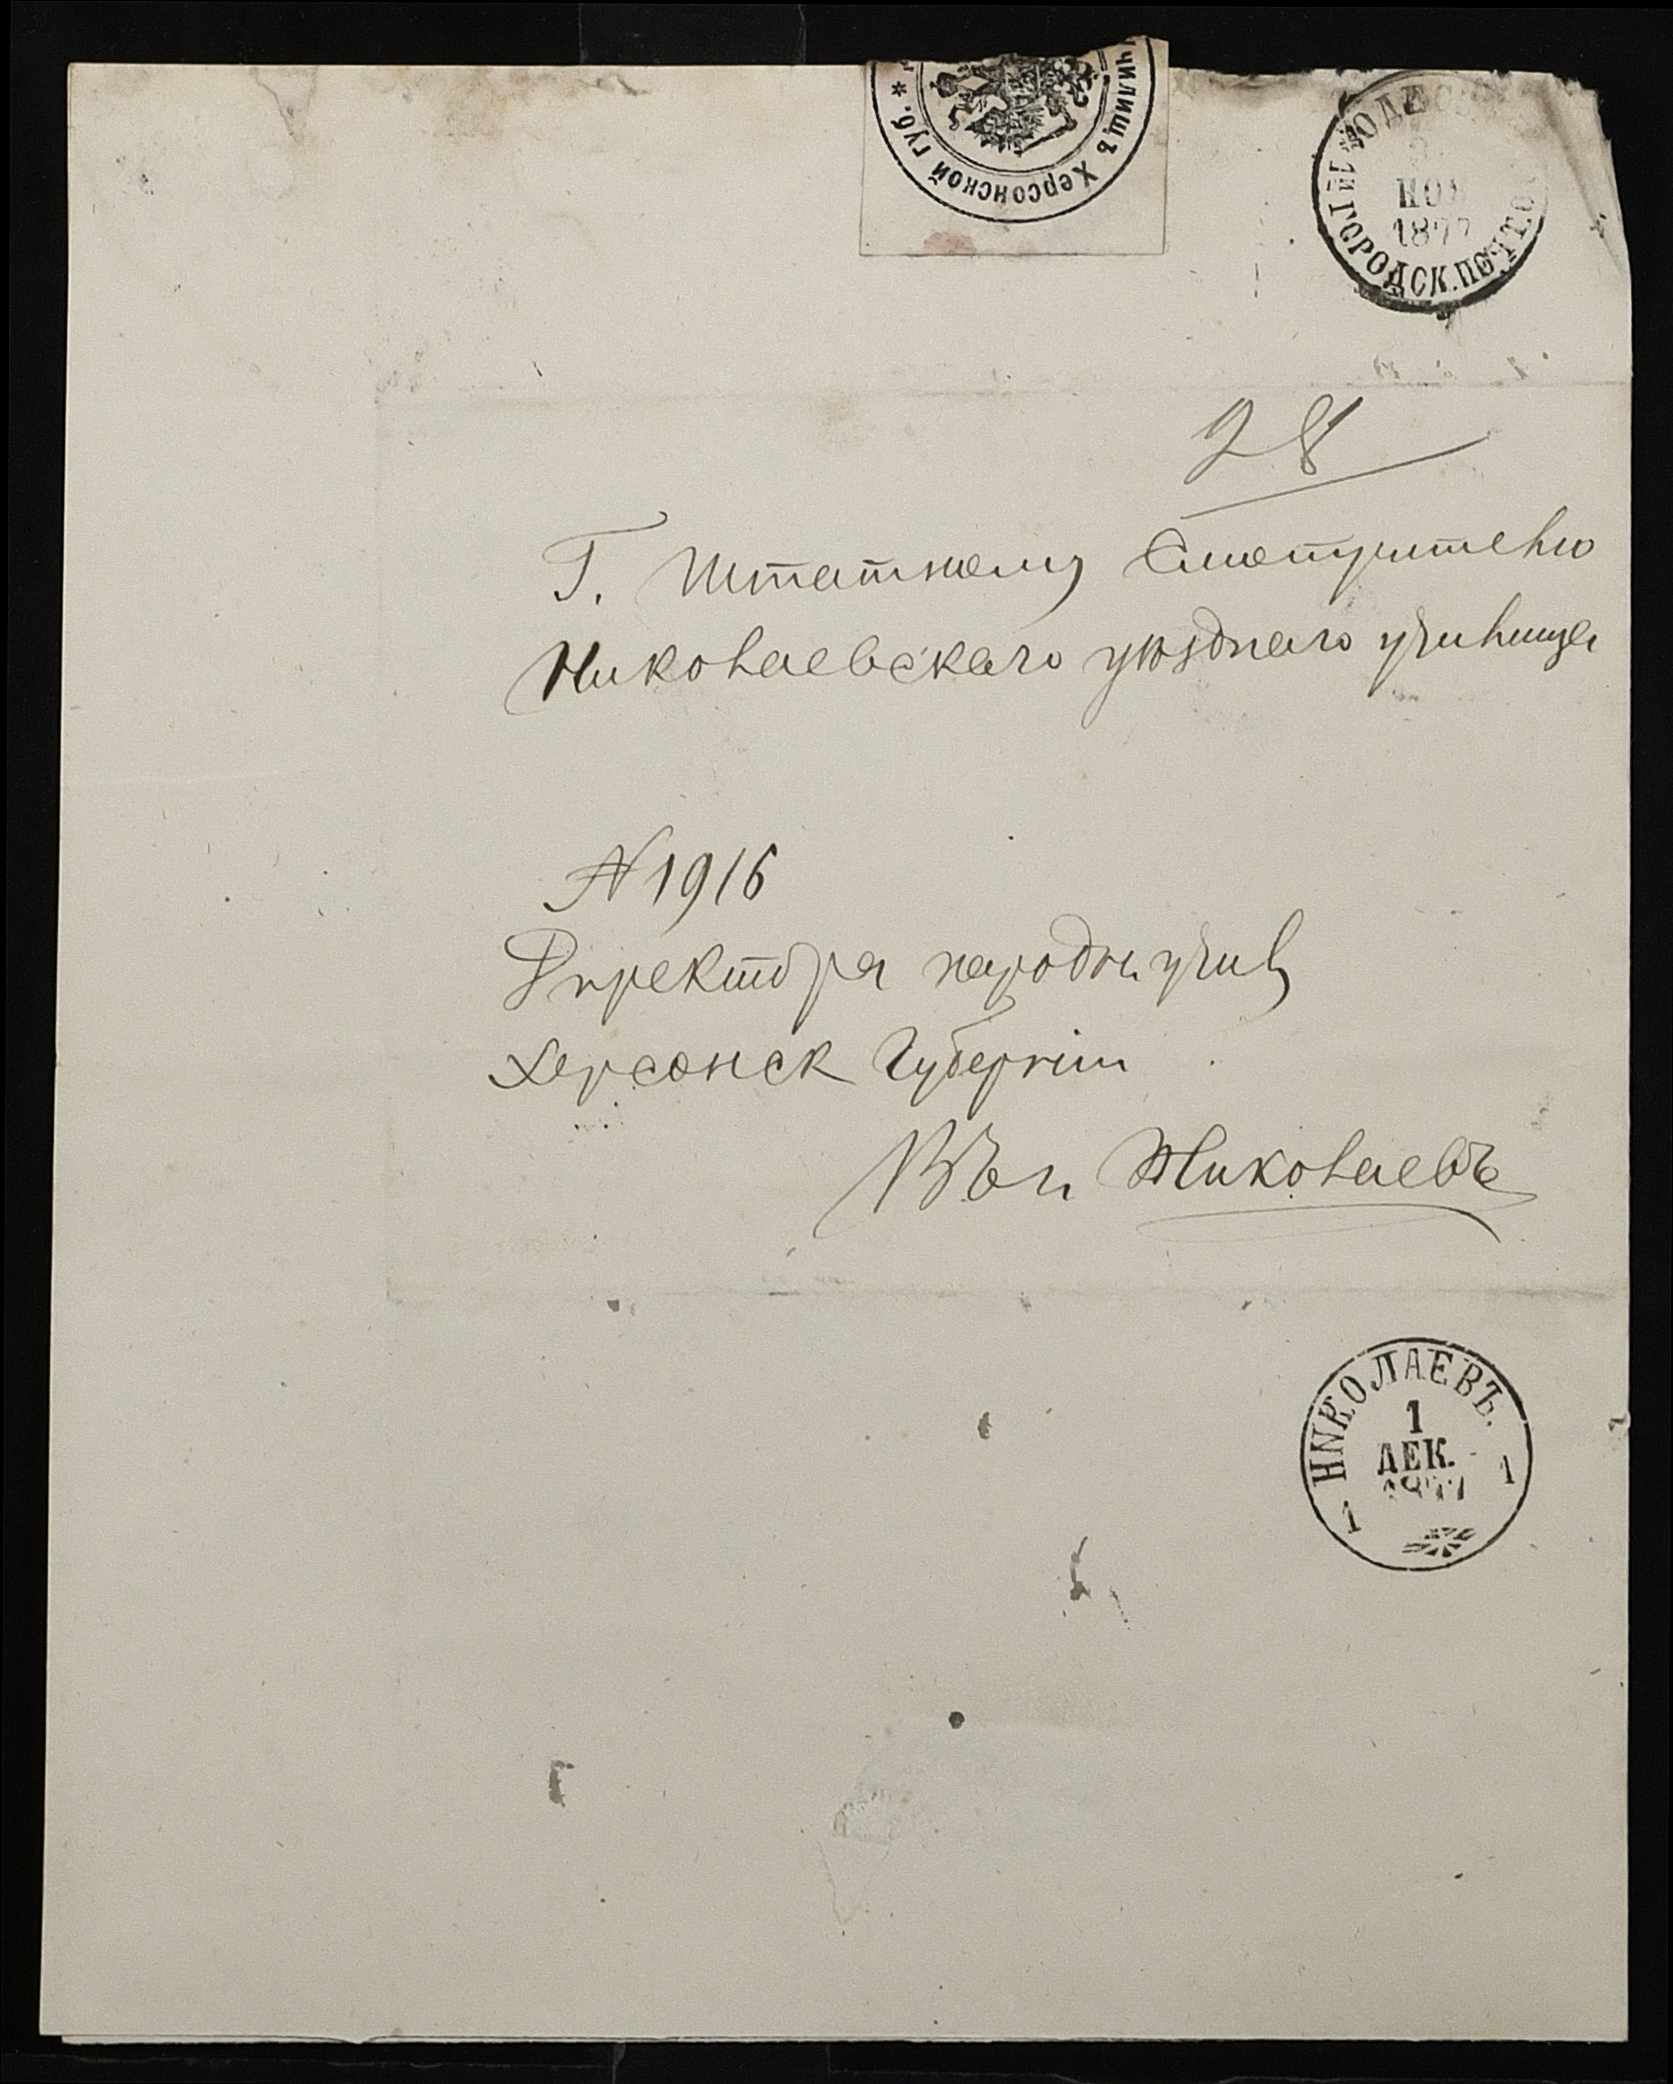 чилищъ Херсонской губ. *
ОДЕС
НОЯ
1877
ГОРОДСК. ПОЧТ. О
28
Г. Штатному Смотрителю
Николаевскаго уѣзднаго училища
N 1916
Директора народн. учил
Херсонск Губерніи
Въ г. Николаевъ
НИКОЛАЕВЪ.
1
ДЕК.
1877
1 1